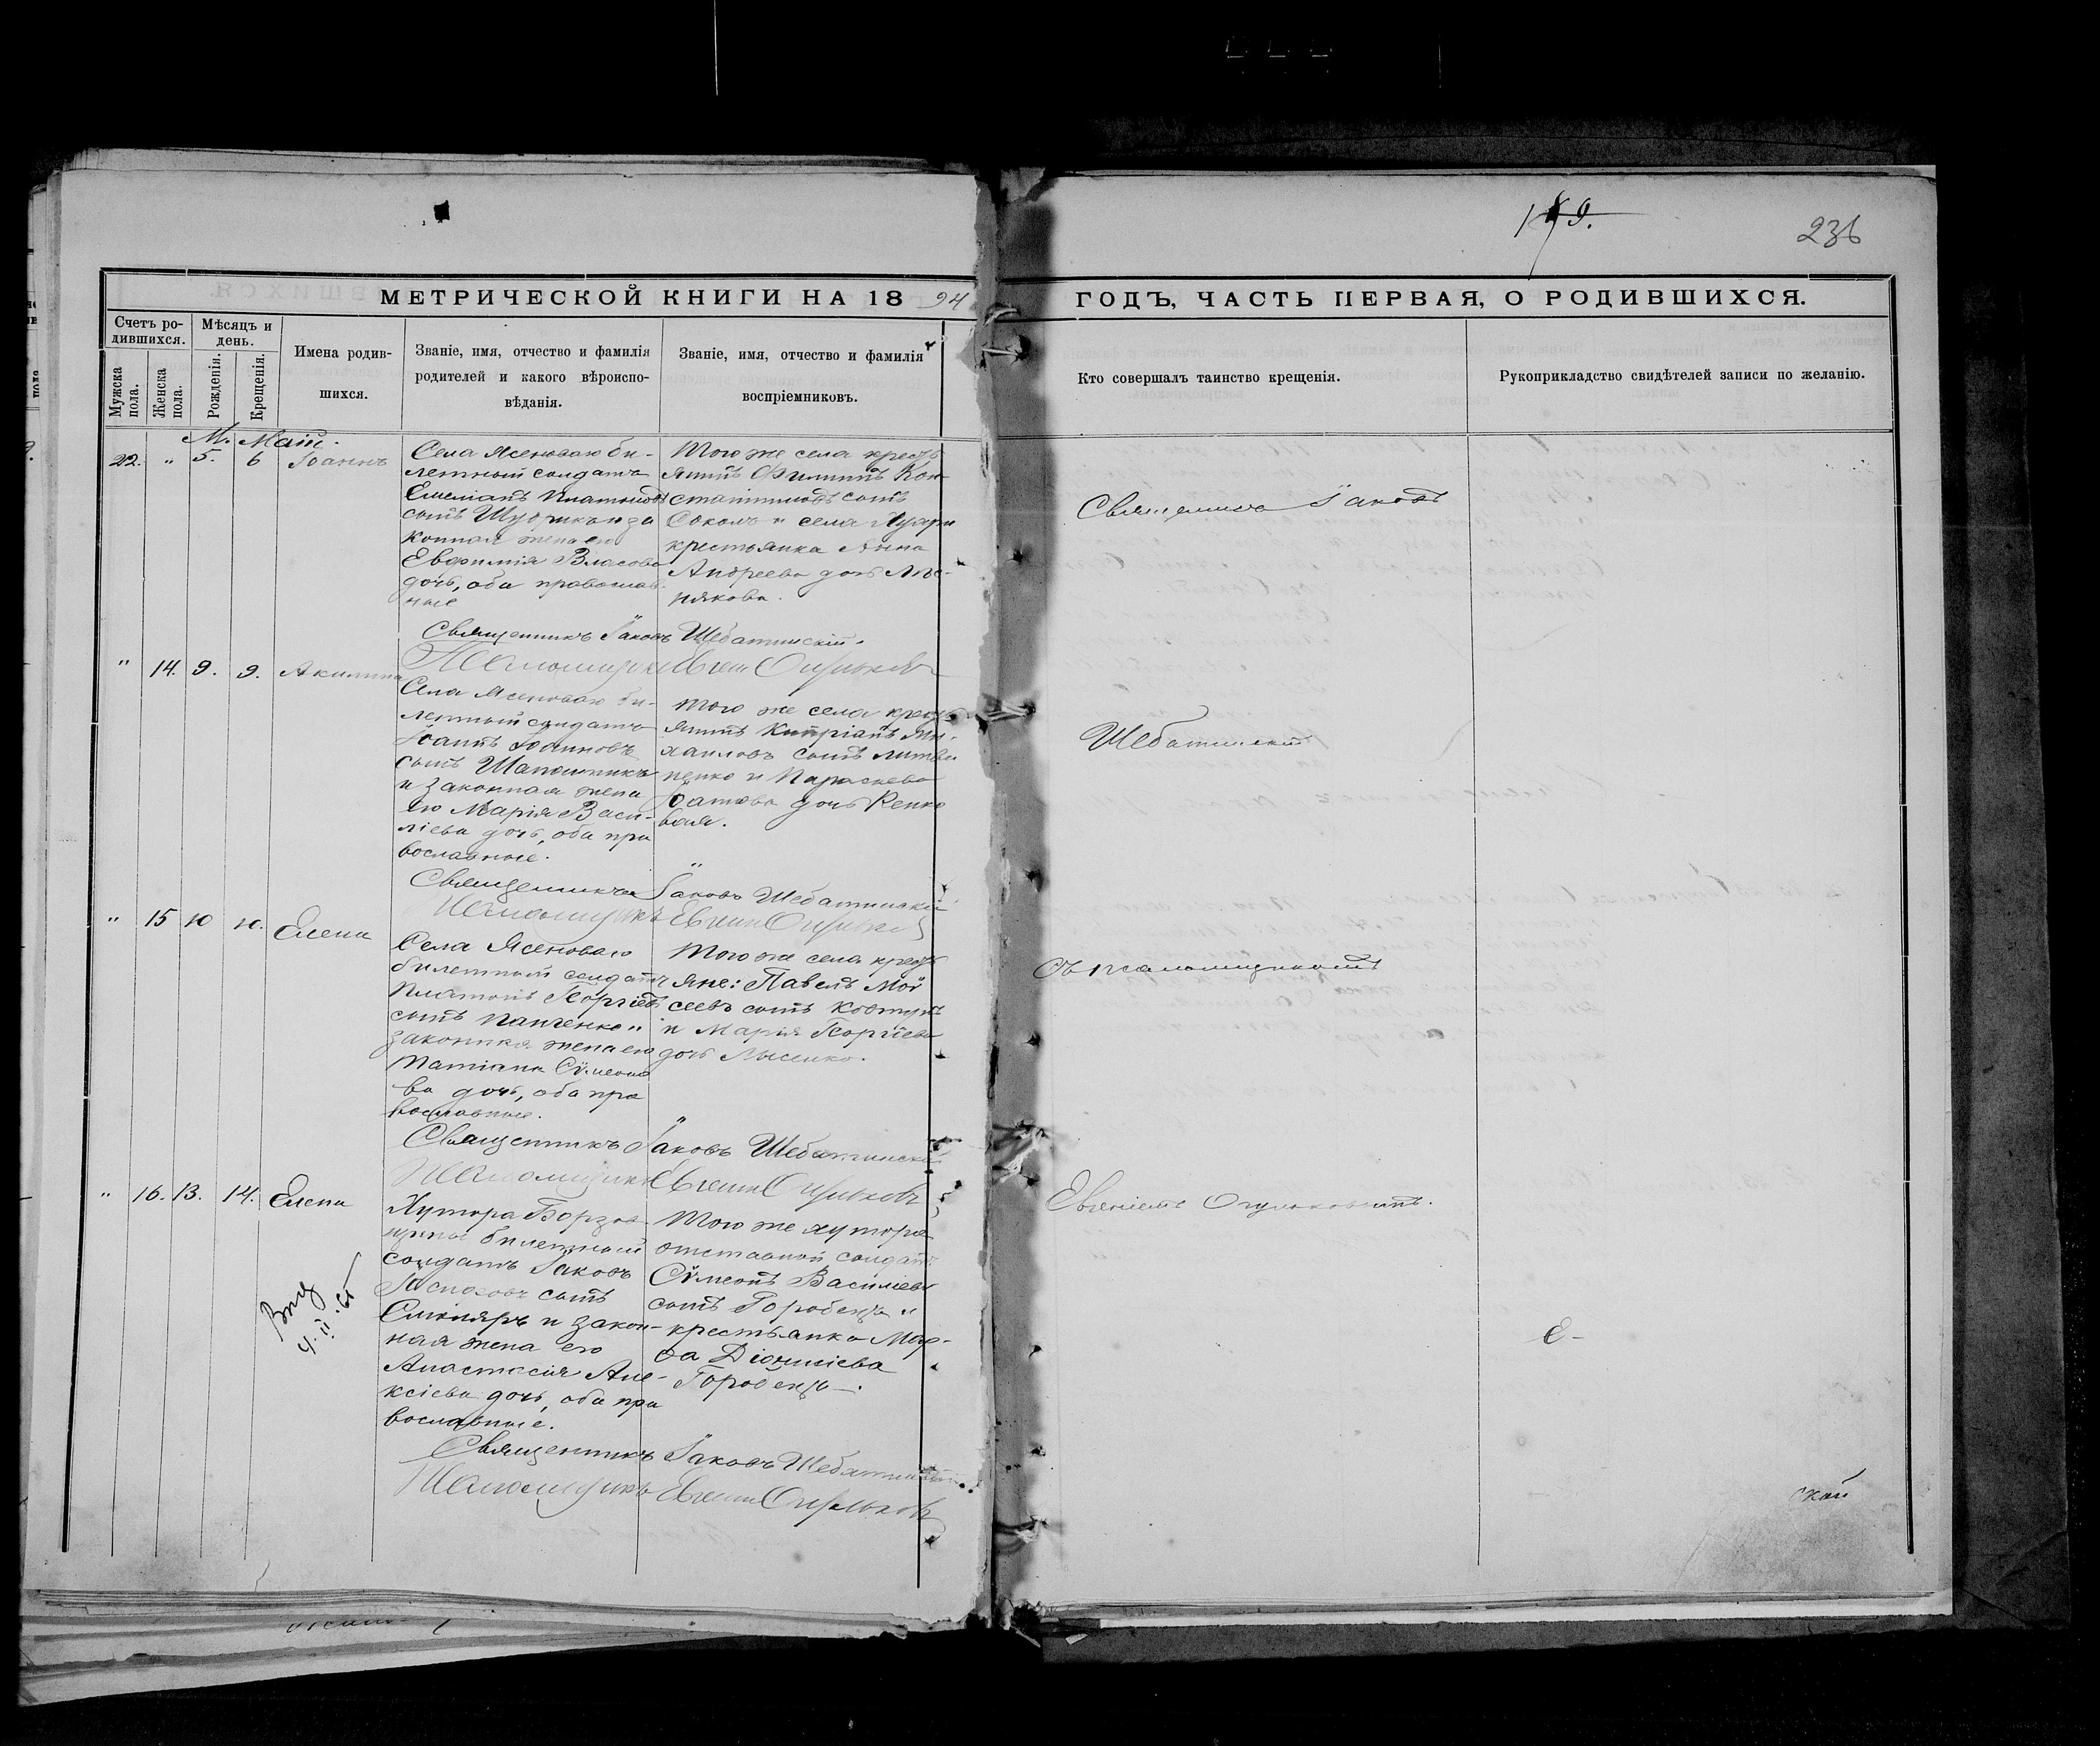 189.
236
МЕТРИЧЕСКОЙ КНИГИ НА 18 94
ГОДЪ, ЧАСТЬ ПЕРВАЯ, О РОДИВШИХСЯ.
Счетъ ро-
дившихся.
Мужска
пола.
Женска
пола.
Мѣсяцъ и
день.
Рожденія.
Крещенія.
Имена родив-
шихся.
Званіе, имя, отчество и фамилія
родителей и какого вѣроиспо-
вѣданія.
Званіе, имя, отчество и фамилія
воспріемниковъ.
Кто совершалъ таинство крещенія.
Рукоприкладство свидѣтелей записи по желанію.
М. Май.
22. " 5. 6 Іоаннъ
Села Ясеноваго би-
летный солдатъ
Емеліанъ Платоновъ
сынъ и за
конная жена его
Евфимія Власова
дочь, оба православ
ные
Того же села кресть
янинъ Филиппъ Кон-
стантиновъ сынъ
Соколъ и села
крестьянка Анна
Андреева дочь
Священникъ Іаковъ Шебатинскій.
Псаломщикъ Евгеній Огульковъ
" 14. 9. 9. Акилина
Села Ясеноваго би-
летный солдатъ
Іоаннъ Іоанновъ
сынъ Шапошникъ
и законная жена
его Марія Васи-
ліева дочь, оба пра
вославные.
Того же села кресть
янинъ Кипріанъ Ми-
хаиловъ сынъ Литви
ненко и Параскева
дочь
Священникъ Іаковъ Шебатинскій
Псаломщикъ Евгеній Огульковъ
" 15 10 10. Елена
Села Ясеноваго
билетный солдатъ
Платонъ Георгіевъ
сынъ Панченко и
законная жена его
Татіана Сѵмеоно
ва дочь, оба пра
вославные.
Того же села кресть
яне: Павелъ Мой
сеевъ сынъ Ковтунъ
и Марія Георгіева
дочь Лысенко.
Священникъ Іаковъ Шебатинскій
Псаломщикъ Евгеній Огульковъ
" 16. 13. 14. Елена
4. II. 65
Хутора Борзов-
билетный
солдатъ Іаковъ
сынъ
и закон-
ная жена его
Анастасія Але-
ксіева дочь, оба пра
вославные.
Того же хутора
отставной солдатъ
Сѵмеонъ Василіевъ
сынъ Горобецъ и
крестьянка Мар-
ѳа Діонисіева
Горобецъ.
Священникъ Іаковъ Шебатинскій
Псаломщикъ Евгеній Огульковъ
Священникъ Іаковъ
Шебатинскій
съ псаломщикомъ
Евгеніемъ Огульковымъ.
ской